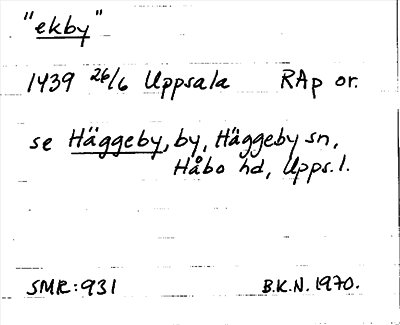 "ekby"
1439 26/6 Uppsala RAp or.
se Häggeby, by, Häggeby sn,
Håbo hd, Upps. l.
SMR: 931 B.K.N. 1970.